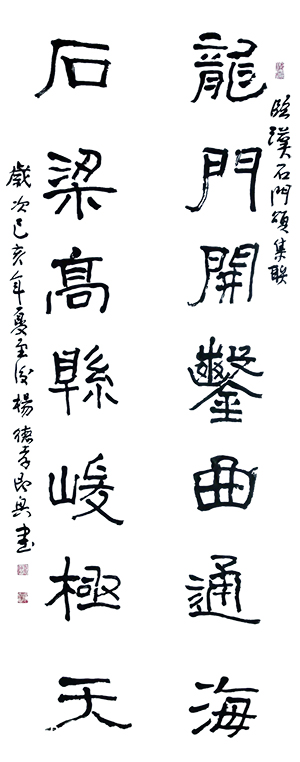 臨漢石門頌集联
龍門開鑿曲通海
石梁高縣峻極天
歲次己亥年夏至後楊德孝即興書